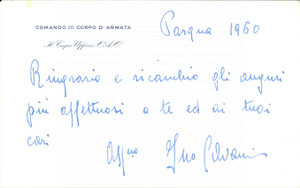 COMANDO III CORPO D'ARMATA
Il Capo Ufficio O.A.C.
Pasqua 1960
Ringrazio e ricambio gli auguri
più affettuosi a te ed ai tuoi
cari
Aff.mo